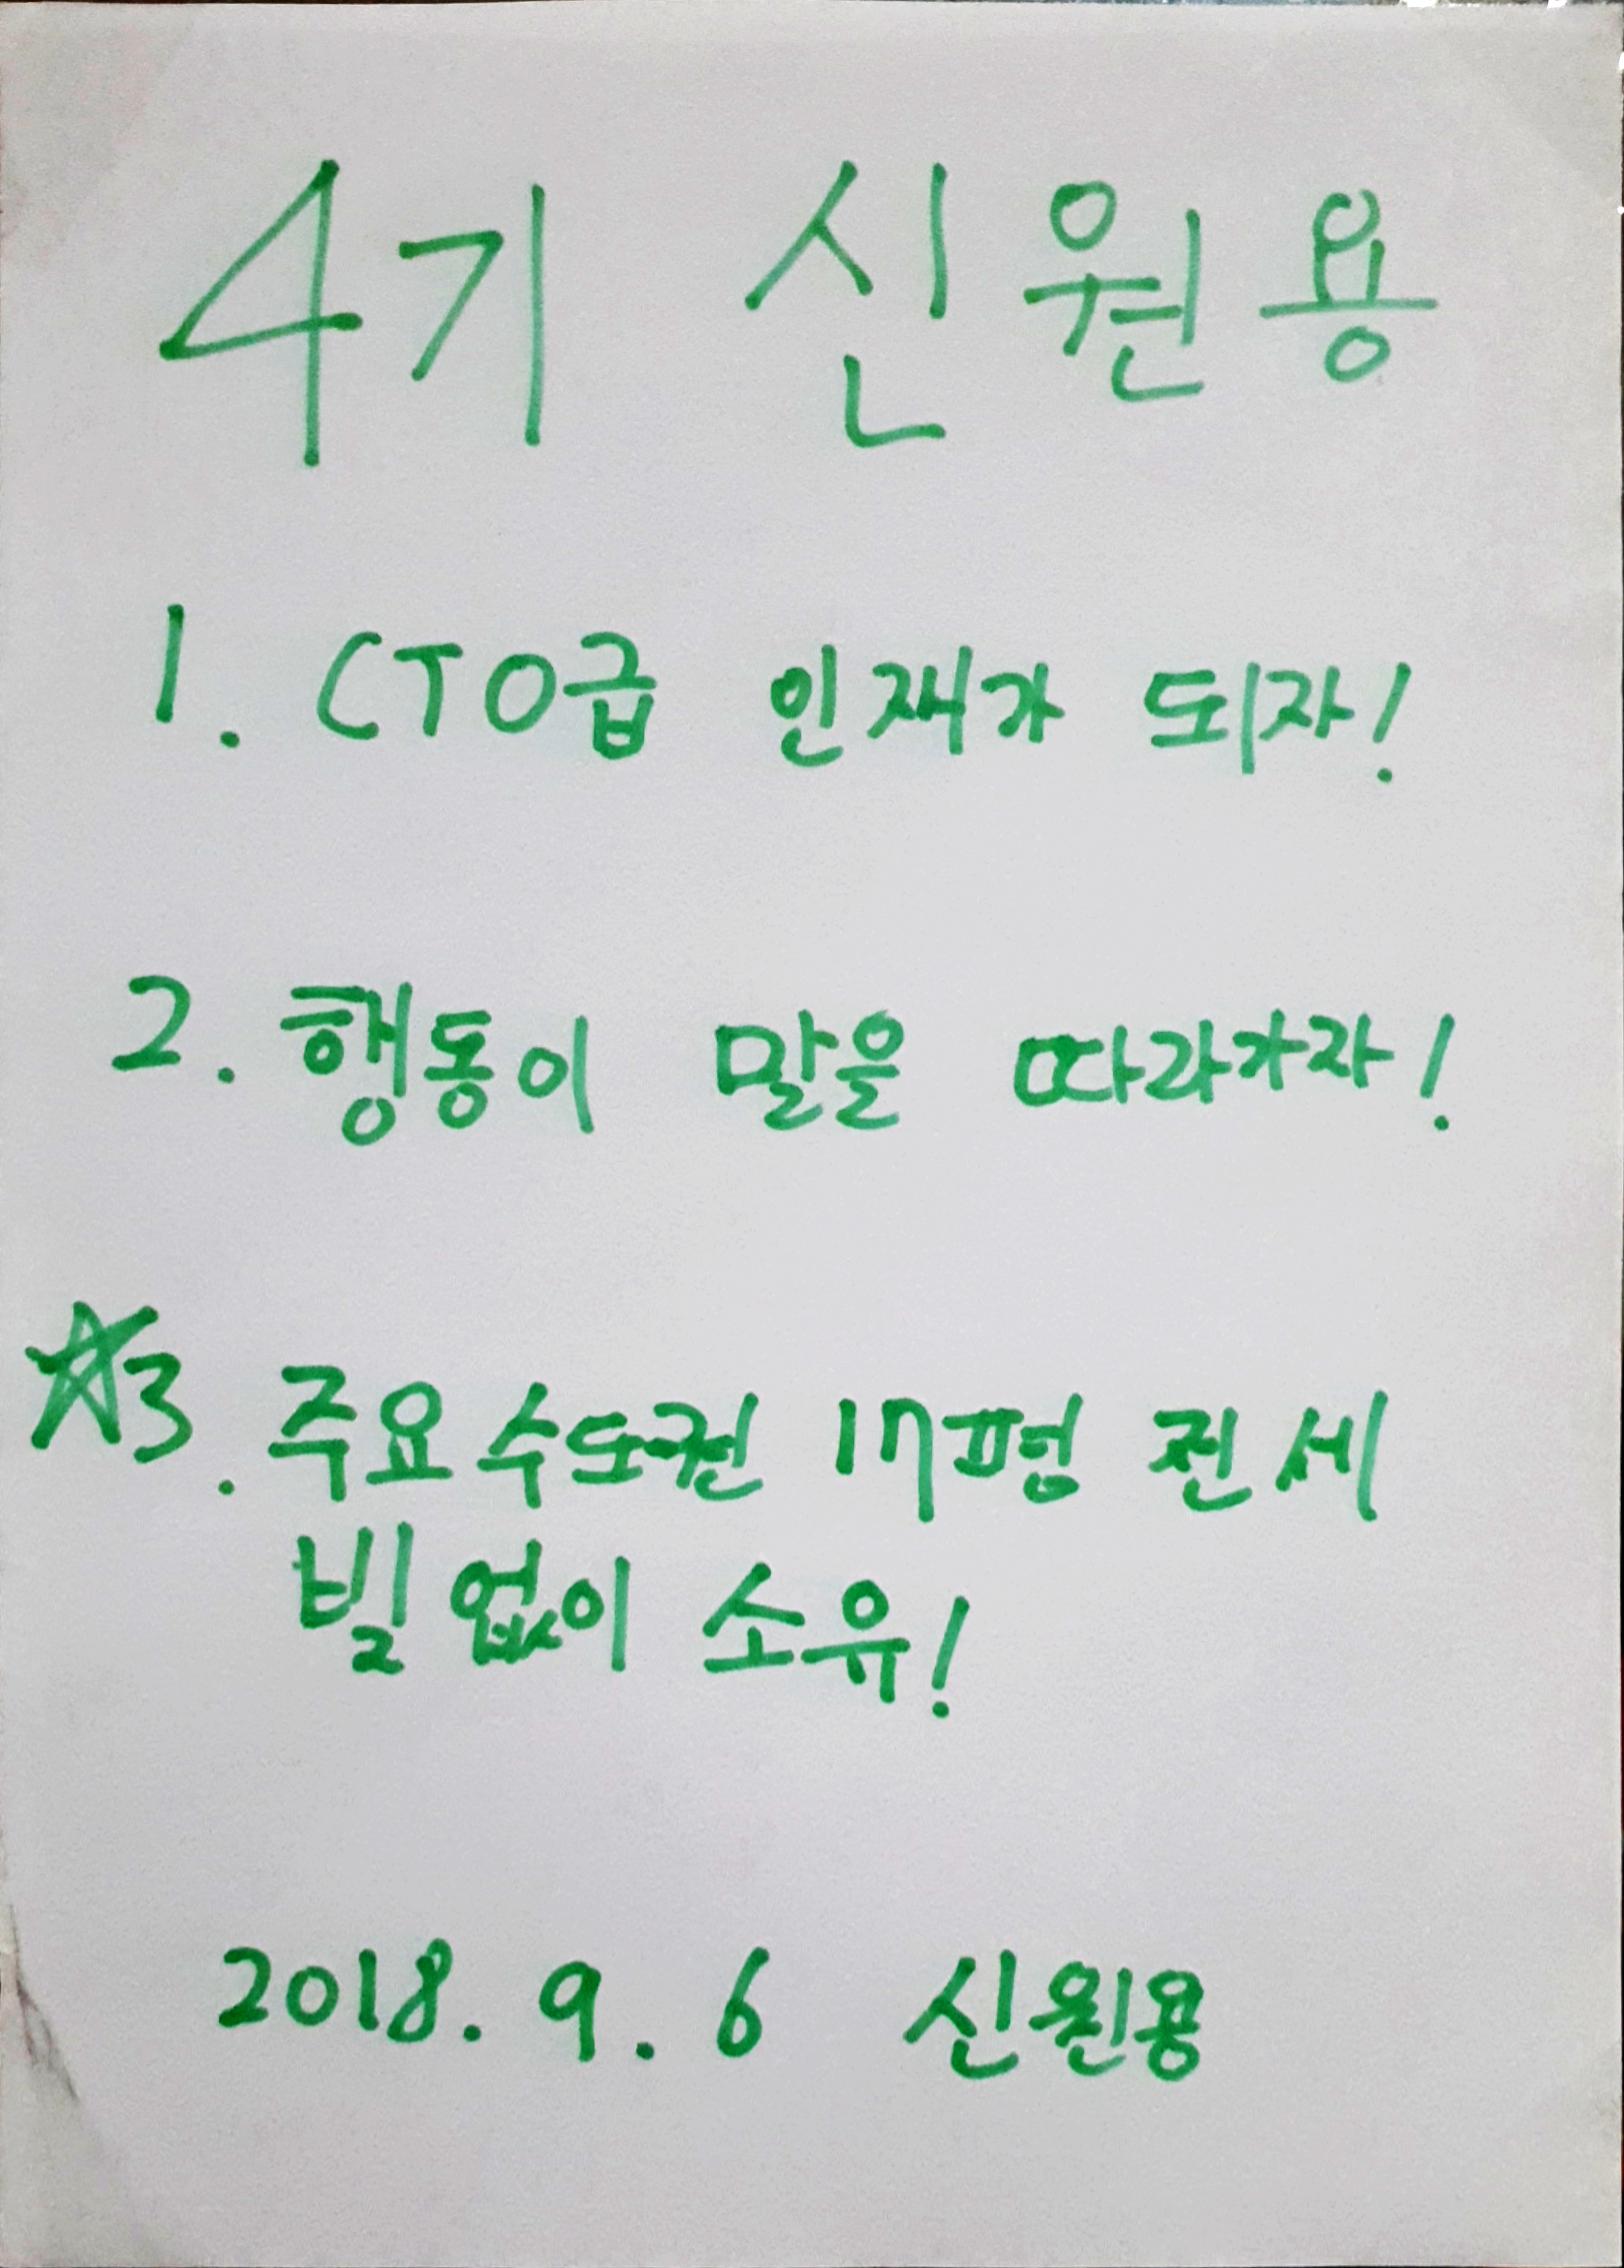 4기 신원용
1. CTO급 인재가 되자!
2. 행동이 말을 따라가자!
☆3. 주요 수도권 17평 전세
빚 없이 소유!
2018. 9. 6 신원용